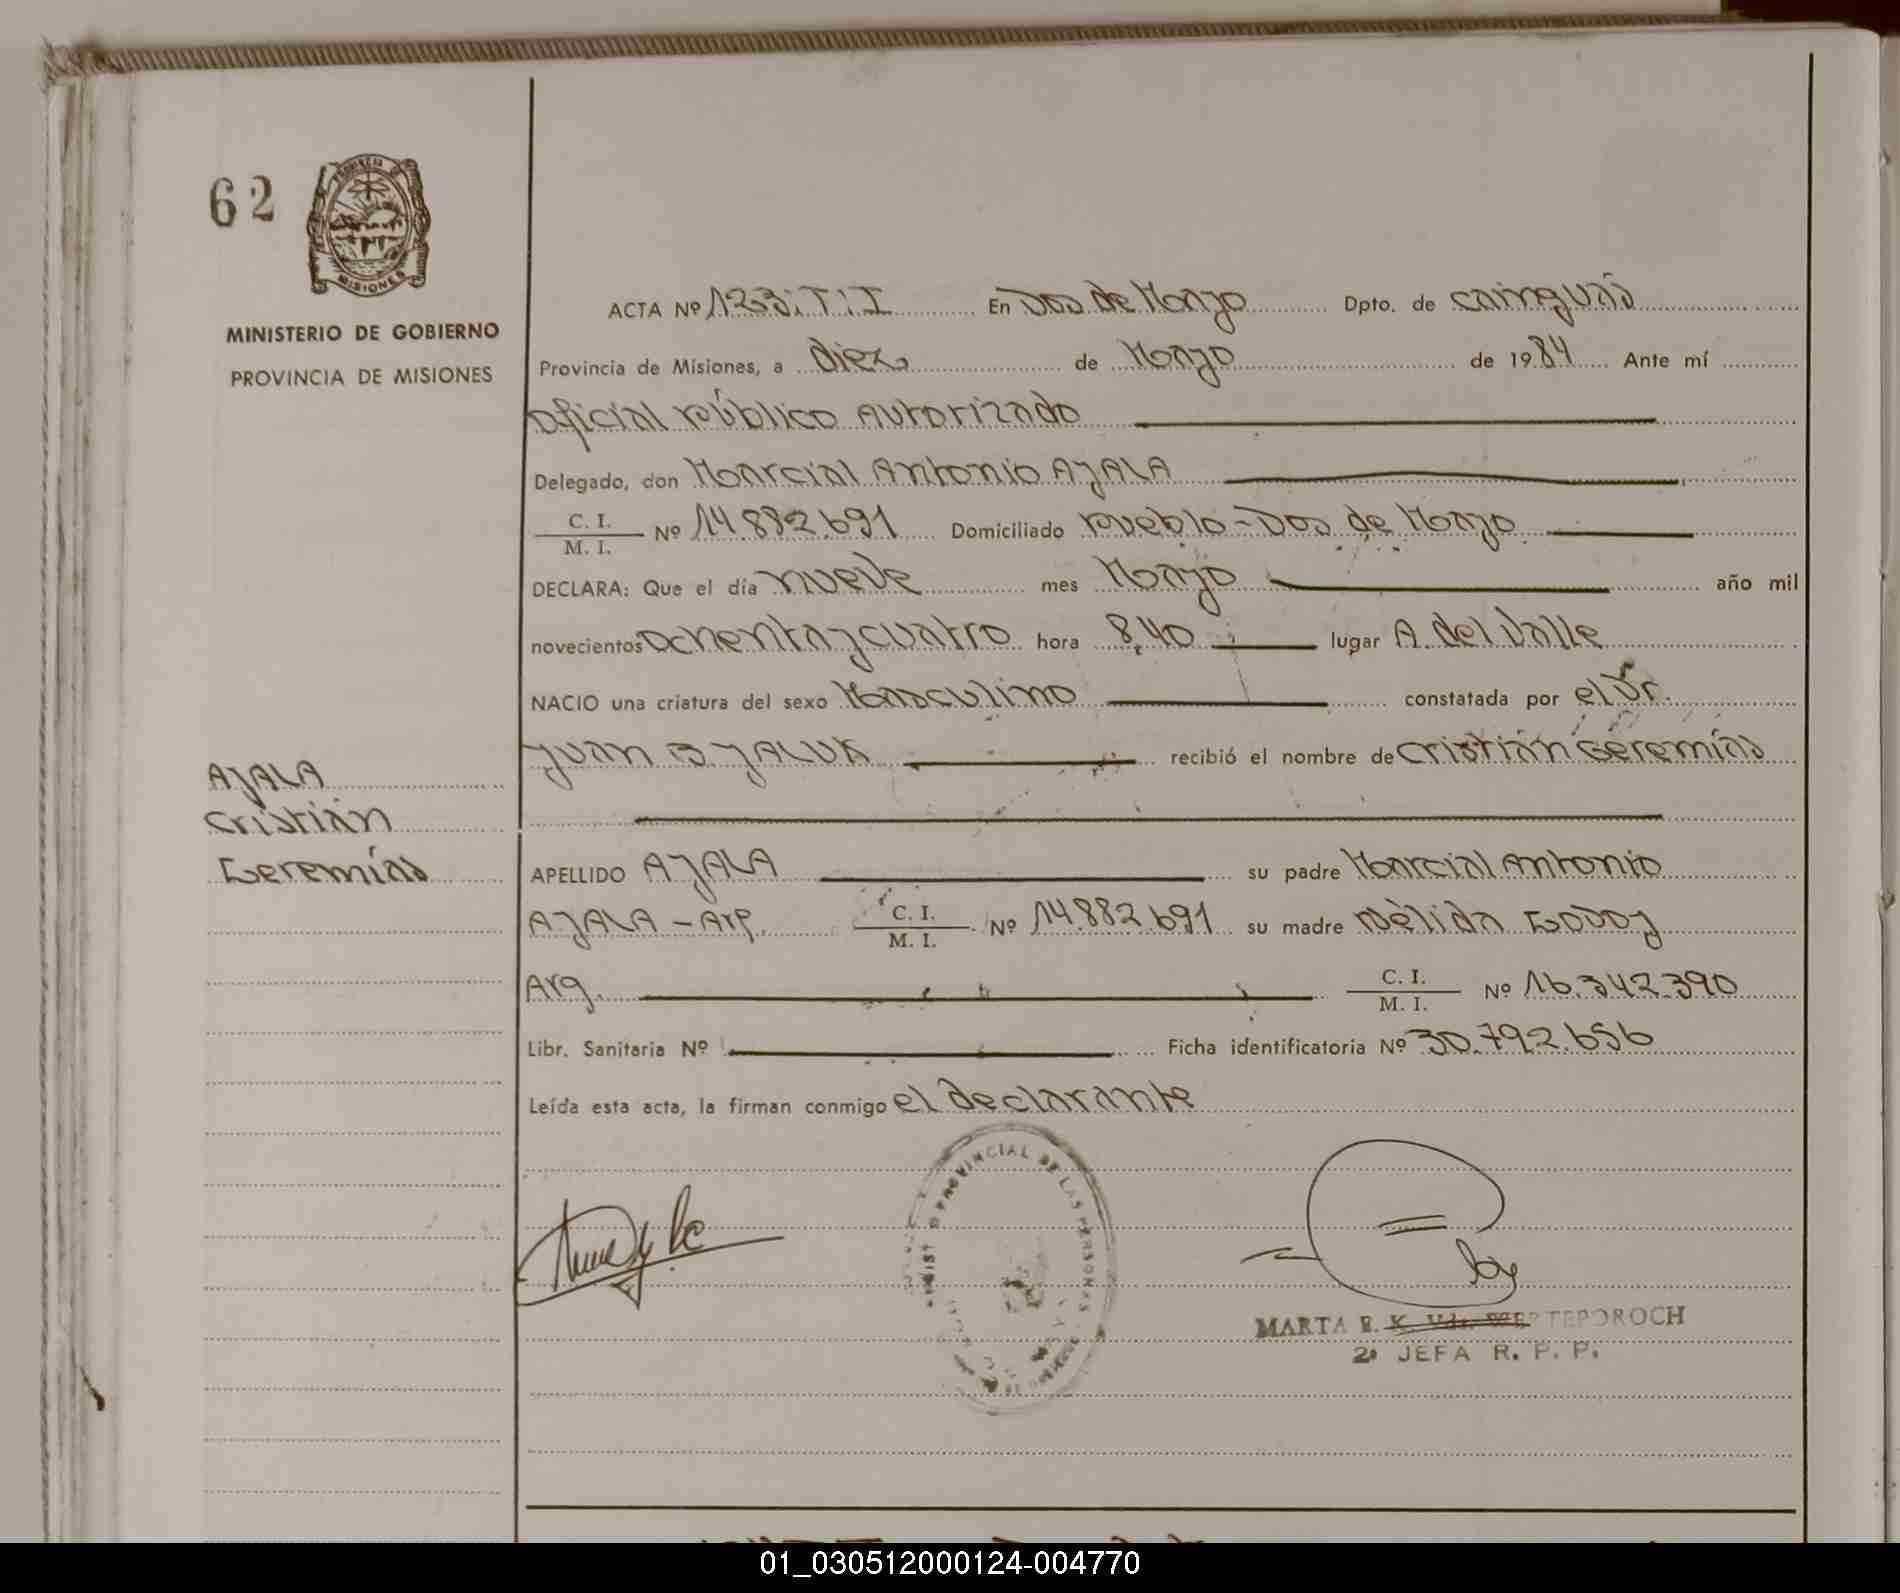 62
PROVINCIA DE
MISIONES
MINISTERIO DE GOBIERNO
PROVINCIA DE MISIONES
ACTA Nº 123:T:I En Dos de Mayo Dpto. de Cainguás
Provincia de Misiones, a diez de Mayo de 1984 Ante mí
Oficial Público Autorizado
Delegado, don Marcial Antonio AyALA
C. I.
M. I. Nº 14.882.691 Domiciliado Pueblo - Dos de Mayo
DECLARA: Que el día nueve mes Mayo año mil
novecientos ochenta y cuatro hora 8,40 lugar A. del Valle
NACIO una criatura del sexo Masculino constatada por el Dr.
Juan B. recibió el nombre de Cristián Geremías
AyALA
Cristián
Geremías
APELLIDO AyALA su padre Marcial Antonio
AyALA - Arg. C. I.
M. I. Nº 14.882.691 su madre Nélida Godoy
Arg. C. I.
M. I. Nº 16.342.390
Libr. Sanitaria Nº Ficha identificatoria Nº 30.792.656
Leída esta acta, la firman conmigo el declarante
PROVINCIAL DE LAS PERSONAS
MARTA E. K. Vda. TEPOROCH
2ª JEFA R. P. P.
01_030512000124-004770